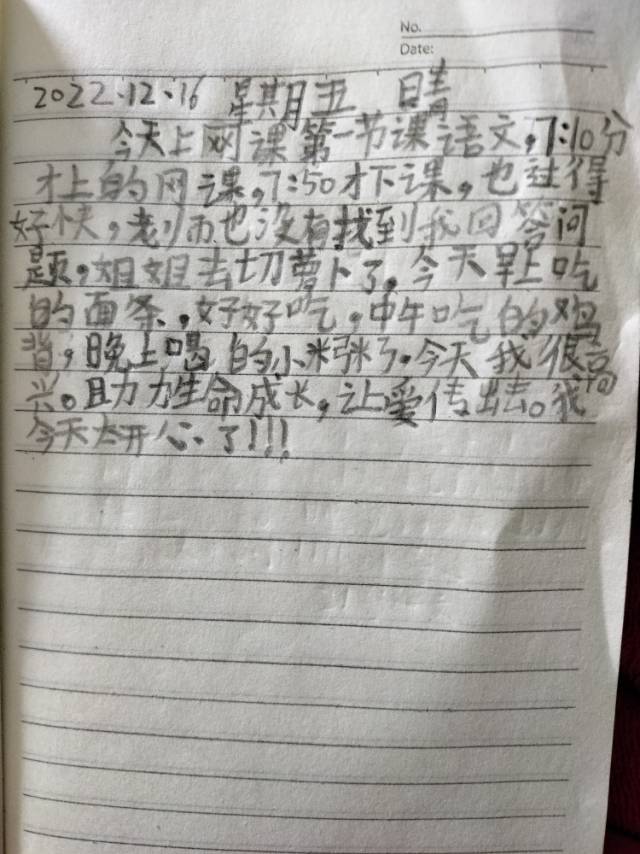 No.
Date:
2022.12.16 星期五 晴
今天上网课第一节课语文,7:10分
才上的网课,7:50才下课,也过得
好快,老师也没有找到我回答问
题,姐姐去切萝卜了,今天早上吃
的面条,好好吃,中午吃的鸡
背,晚上喝的小米粥了.今天我很高
兴。助力生命成长,让爱传出去。我
今天太开心了!!!